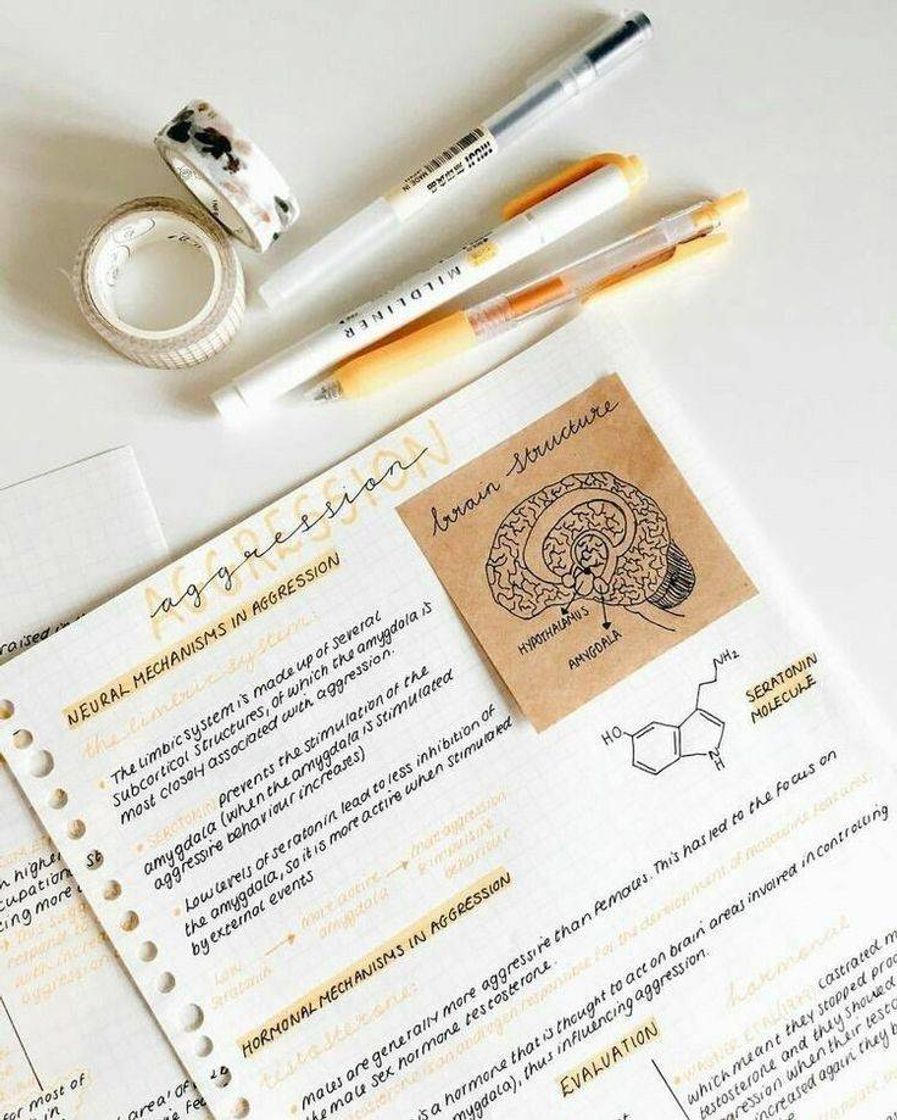 muji
MADE IN
MILDLINER
AGGRESSION
aggression
NEURAL MECHANISMS IN AGGRESSION
the limbic system:
• The limbic system is made up of several
subcortical structures, of which the amygdala is
most closely associated with aggression.
• SEROTONIN prevents the stimulation of the
amygdala (when the amygdala is stimulated
aggressive behaviour increases)
• Low levels of seratonin lead to less inhibition of
the amygdala, so it is more active when stimulated
by external events
Low seratonin → more active amygdala → more aggression & impulsive behaviour
brain structure
HYPOTHALAMUS
AMYGDALA
NH2
HO
N
H
SERATONIN
MOLECULE
HORMONAL MECHANISMS IN AGGRESSION
testosterone:
• males are generally more aggressive than females. This has led to the focus on
the male sex hormone testosterone.
is an androgen responsible for the development of masculine features.
is a hormone that is thought to act on brain areas involved in controlling
amygdala), thus influencing aggression.
EVALUATION
hormonal
castrated
which meant they stopped
testosterone and they showed
when their
increased again, they
raised in
n higher
cupation
cing more
with
aggression
for most of
area of